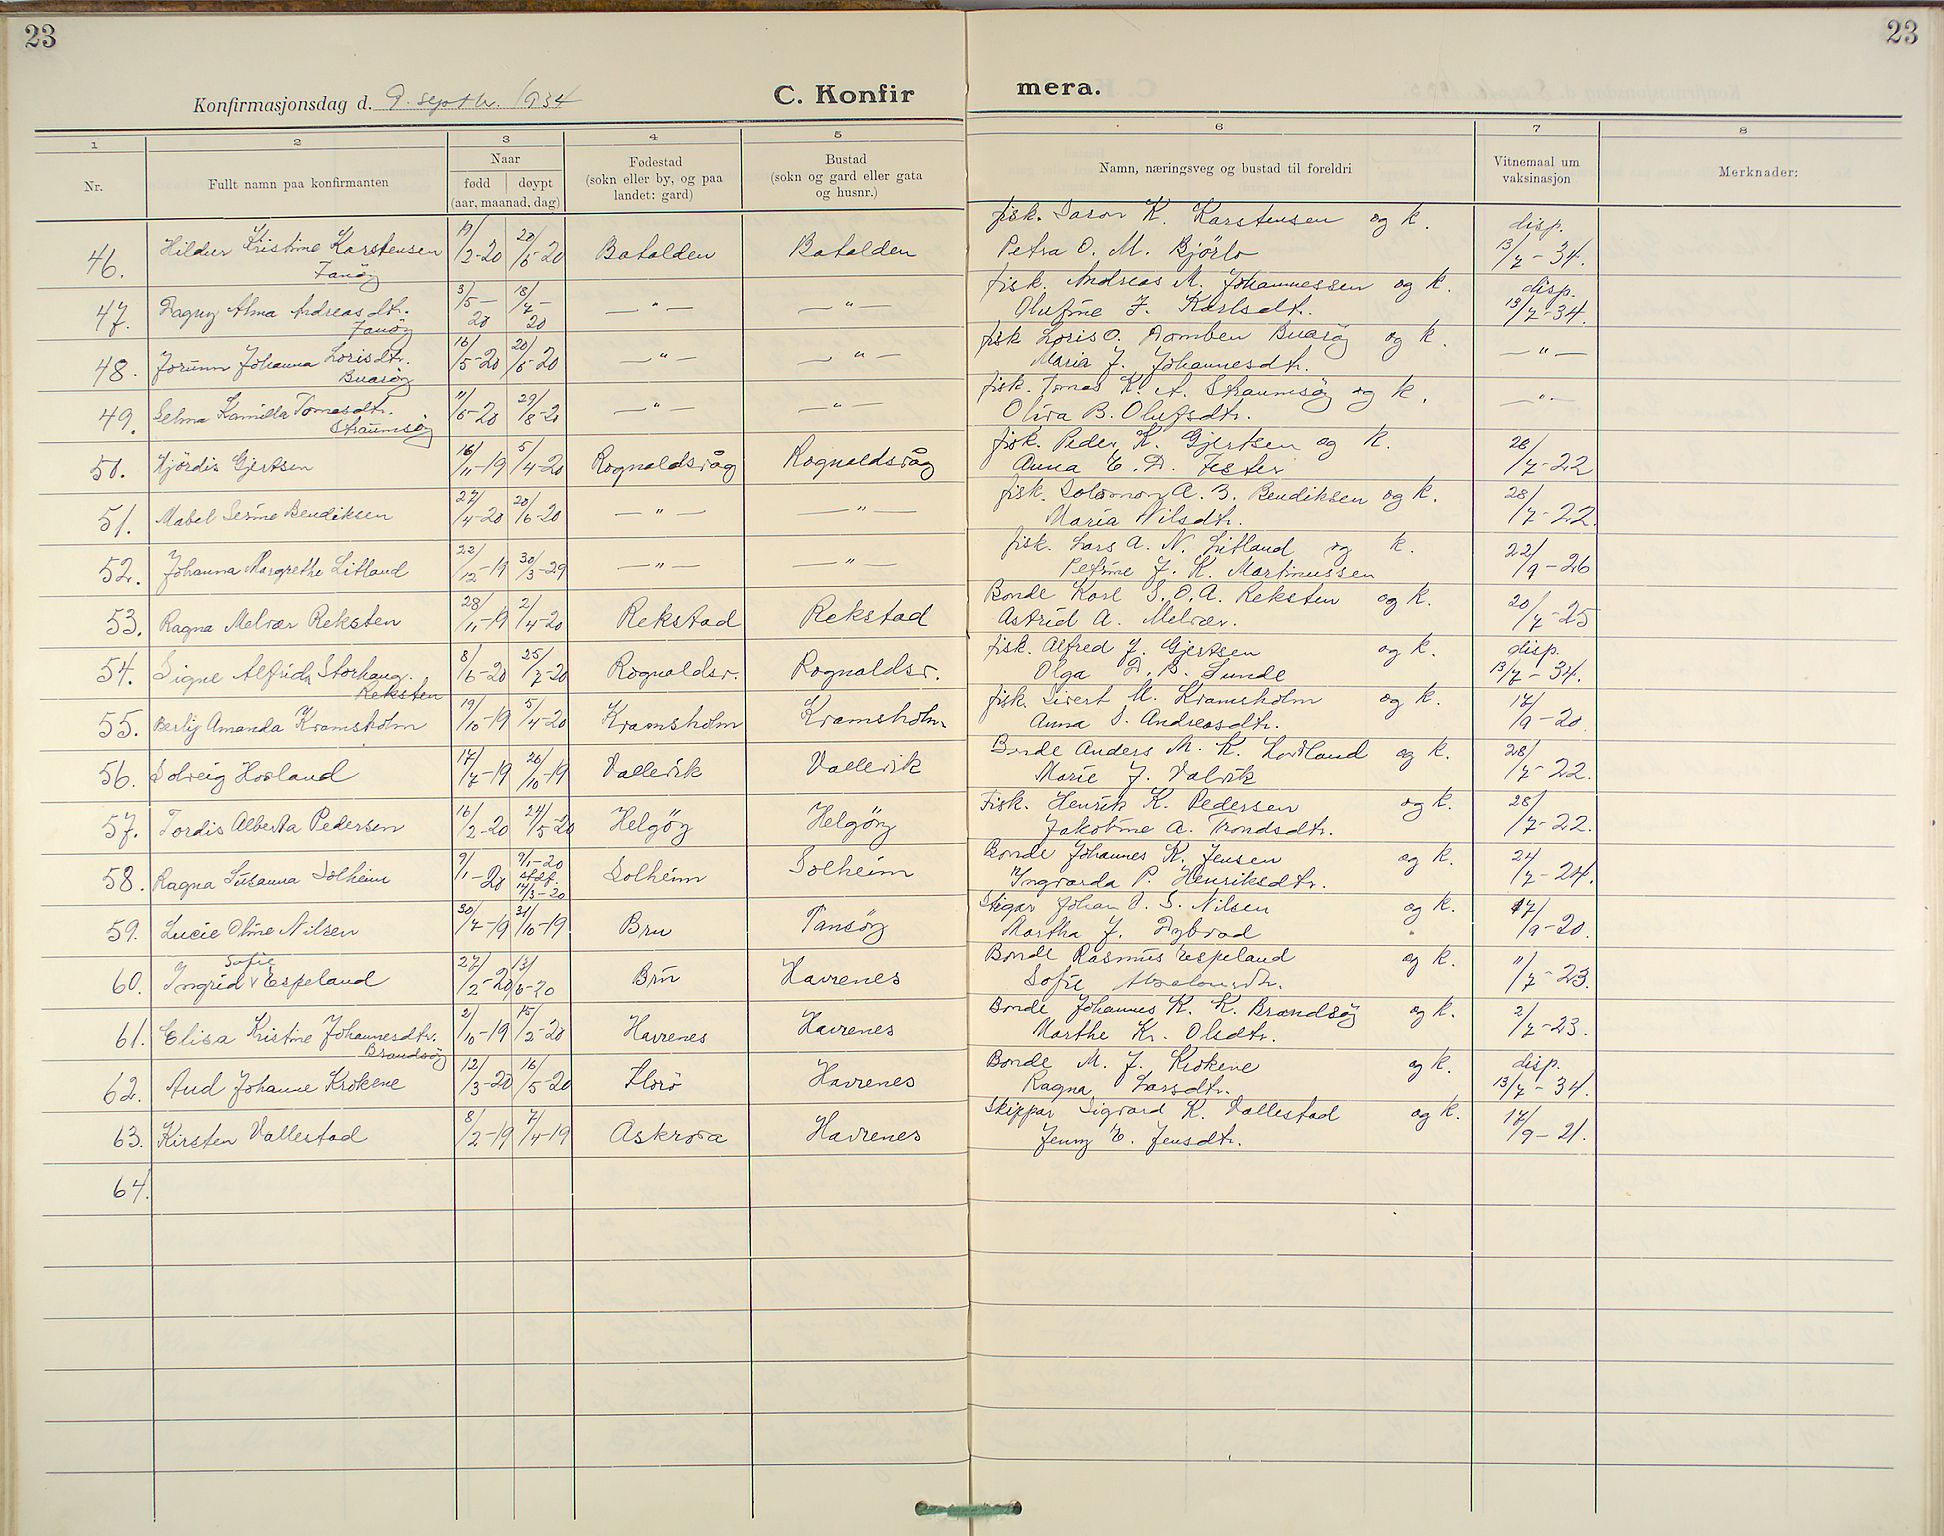 23
23
Konfirmasjonsdag d. 9. septbr. 1934
C. Konfir
mera.
1 2 3 4 5 6 7 8
Nr.
Fullt namn paa konfirmanten
Naar
fødd døypt
(aar, maanad, dag)
Fødestad
(sokn eller by, og paa
landet: gard)
Bustad
(sokn og gard eller gata
og husnr.)
Namn, næringsveg og bustad til foreldri
Vitnemaal um
vaksinasjon
Merknader:
46. Hildur Kristine Karstensen 19/2-20 20/5-20 Batalden Batalden fisk. K. Karstensen og k. disp.
Fanöy Petra O. M. Bjørlo 13/7-34.
47. Dagny Alma Andreasdtr. 3/5-20 18/7-20 —"— —"— fisk. Andreas M. Johannessen og k. disp.
Fanöy Olufine J. Karlsdt. 13/7-34.
48. Jorunn Johanna Lorisdtr. 16/5-20 20/6-20 —"— —"— fisk Loris O. Domben Buaröy og k. —"—
Buaröy Maria J. Johannesdt.
49. Selma Kamilla Tomasdtr. 11/6-20 29/8-20 —"— —"— fisk. Tomas K. A. Straumsöy og k. —"—
Straumsöy Oliva B. Olufsdtr.
50. Hjördis Gjertsen 16/11-19 5/4-20 Rognaldsvåg Rognaldsvåg fisk. Peder K. Gjertsen og k. 28/7-22
Anna E. D. Fester
51. Mabel Serine Bendiksen 27/4-20 20/6-20 —"— —"— fisk. Solomon A. B. Bendiksen og k. 28/7-22.
Maria Nilsdtr.
52. Johanna Margrethe Litland 22/12-19 30/3-29 —"— —"— fisk. Lars A. N. Litland og k. 22/9-26
Petrine J. K. Martinussen
53. Ragna Melvær Reksten 28/11-19 2/4-20 Rekstad Rekstad Bonde Karl S. O. A. Reksten og k. 20/7-25
Astrid A. Melvær.
54. Signe Alfrida Storhaug. 8/6-20 25/7-20 Rognaldsv. Rognaldsv. fisk. Alfred J. Gjertsen og k. disp.
Reksten Olga D. B. Sunde 13/7-34.
55. Berly Amanda Kramsholm 19/10-19 5/4-20 Kramsholm Kramsholm fisk. Sivert M. Kramsholm og k. 17/9-20
Anna S. Andreasdtr.
56. Solveig Hovland 17/7-19 26/10-19 Vallevik Vallevik Bonde Anders M. K. Hovland og k. 28/7-22.
Marie J. Valvik
57. Tordis Alberta Pedersen 16/2-20 24/5-20 Helgöy Helgöy Fisk. Henrik K. Pedersen og k. 28/7-22.
Jakobine A. Trondsdtr.
58. Ragna Susanna Solheim 9/1-20 9/1-20 stdf. 14/3-20 Solheim Solheim Bonde Johannes K. Jensen og k. 24/7-24.
Yngvarda P. Henriksdtr.
59. Lucie Oline Nilsen 30/7-19 31/10-19 Bru Tansöy Johan S. Nilsen og k. 17/9-20.
Martha J. Dybvad
60. Ingrid Sofie Espeland 27/2-20 13/6-20 Bru Havrenes Bonde Rasmus Espeland og k. 11/7-23.
Sofie
61. Elisa Kristine Johannesdtr. 2/10-19 15/2-20 Havrenes Havrenes Bonde Johannes K. K. Brandsöy og k. 2/7-23.
Brandsöy Marthe Kr. Olsdtr.
62. Aud Johanne Krokene 12/3-20 16/5-20 Florö Havrenes Bonde M. J. Krokene og k. disp.
Ragna Larsdtr. 13/7-34.
63. Kirsten Vallestad 8/2-19 7/4-19 Askrova Havrenes Skippar Sigvard K. Vallestad og k. 17/9-21.
Jenny E. Jensdtr.
64.